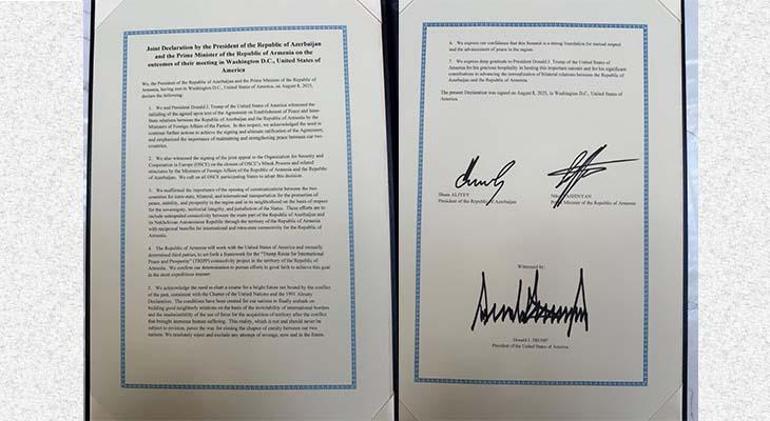 Joint Declaration by the President of the Republic of Azerbaijan
and the Prime Minister of the Republic of Armenia on the
outcomes of their meeting in Washington D.C., United States of
America
We, the President of the Republic of Azerbaijan and the Prime Minister of the Republic of
Armenia, having met in Washington D.C., United States of America, on August 8, 2025,
declare the following:
1. We and President Donald J. Trump of the United States of America witnessed the
initialing of the agreed upon text of the Agreement on Establishment of Peace and Inter-
State relations between the Republic of Azerbaijan and the Republic of Armenia by the
Ministers of Foreign Affairs of the Parties. In this respect, we acknowledged the need to
continue further actions to achieve the signing and ultimate ratification of the Agreement,
and emphasized the importance of maintaining and strengthening peace between our two
countries.
2. We also witnessed the signing of the joint appeal to the Organization for Security and
Cooperation in Europe (OSCE) on the closure of OSCE's Minsk Process and related
structures by the Ministers of Foreign Affairs of the Republic of Armenia and the Republic
of Azerbaijan. We call on all OSCE participating States to adopt this decision.
3. We reaffirmed the importance of the opening of communications between the two
countries for intra-state, bilateral, and international transportation for the promotion of
peace, stability, and prosperity in the region and in its neighborhood on the basis of respect
for the sovereignty, territorial integrity, and jurisdiction of the States. These efforts are to
include unimpeded connectivity between the main part of the Republic of Azerbaijan and
its Nakhchivan Autonomous Republic through the territory of the Republic of Armenia
with reciprocal benefits for international and intra-state connectivity for the Republic of
Armenia.
4. The Republic of Armenia will work with the United States of America and mutually
determined third parties, to set forth a framework for the "Trump Route for International
Peace and Prosperity" (TRIPP) connectivity project in the territory of the Republic of
Armenia. We confirm our determination to pursue efforts in good faith to achieve this goal
in the most expeditious manner.
5. We acknowledge the need to chart a course for a bright future not bound by the conflict
of the past, consistent with the Charter of the United Nations and the 1991 Almaty
Declaration. The conditions have been created for our nations to finally embark on
building good neighborly relations on the basis of the inviolability of international borders
and the inadmissibility of the use of force for the acquisition of territory after the conflict
that brought immense human suffering. This reality, which is not and should never be
subject to revision, paves the way for closing the chapter of enmity between our two
nations. We resolutely reject and exclude any attempt of revenge, now and in the future.
6. We express our confidence that this Summit is a strong foundation for mutual respect
and the advancement of peace in the region.
7. We express deep gratitude to President Donald J. Trump of the United States of America
for his gracious hospitality in hosting this important summit and for his significant
contributions in advancing the normalization of bilateral relations between the Republic of
Azerbaijan and the Republic of Armenia.
The present Declaration was signed on August 8, 2025, in Washington D.C., United States of
America.
Ilham ALIYEV
President of the Republic of Azerbaijan
PASHINYAN
Minister of the Republic of Armenia
Witnessed by:
Donald J. TRUMP
President of the United States of America